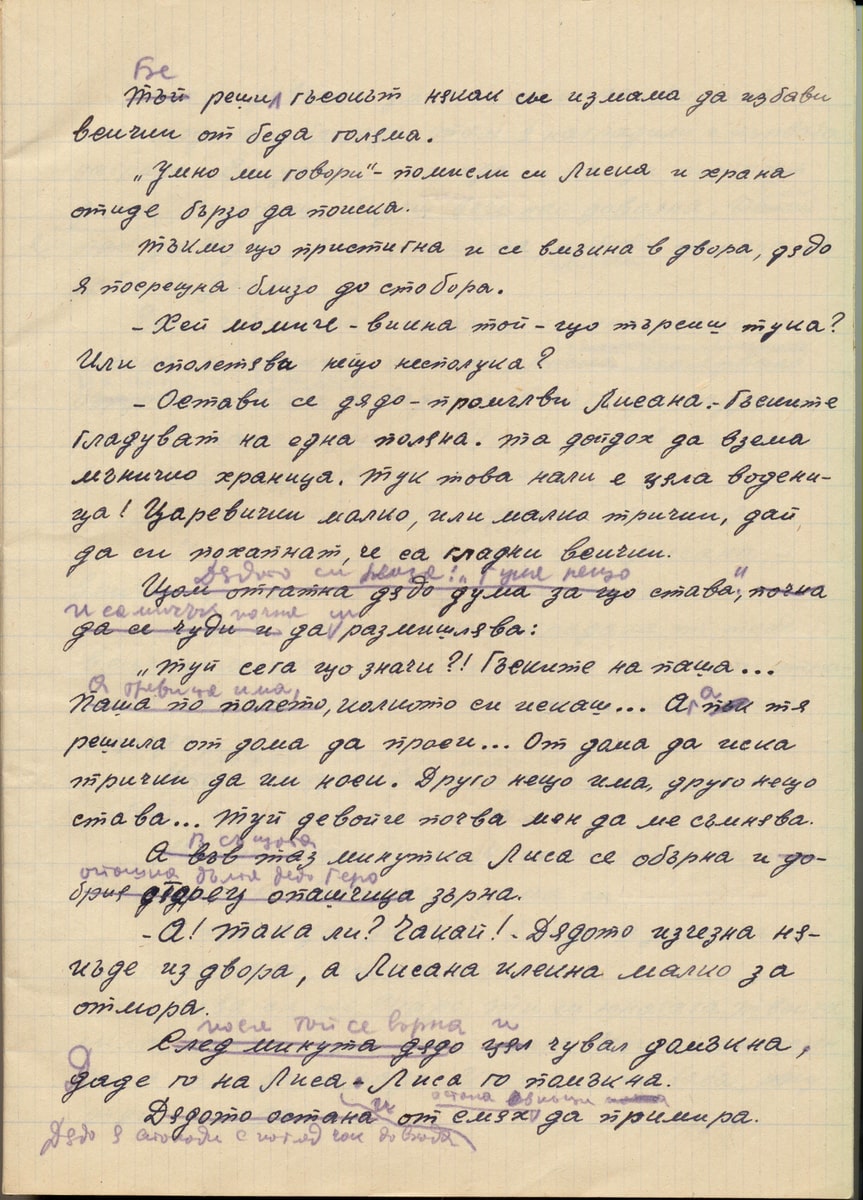 Бе
Тъй решил гъсокът някак със измама да избави
всички от беда голяма.
„Умно ми говори“ - помисли си Лиска и храна
отиде бързо да поиска.
Тъкмо що пристигна и се вмъкна в двора, дядо
я посрещна близо до стобора.
- Хей момиче - викна той - що търсиш тука?
Или сполетява нещо несполука?
- Остави се дядо - промълви Лисана. - Гъските
гладуват на една поляна. Та дойдох да взема
мъничко храница. Тук това нали е цяла водени-
ца! Царевички малко, или малко трички, дай
да си похапнат, че са гладни всички.
Дядото си каже: „Туй нещо
Щом отгатна дядо дума за що става“, почна
и самичък почна
да се чуди и да размишлява:
„Туй сега що значи?! Гъските на паша...
А тревица има,
Паша по полето, колкото си искаш... А пък тя
решила от дома да проси... От дома да иска
трички да им носи. Друго нещо има, друго нещо
става... Туй девойче почва мен да ме съмнява.
В същата
А във таз минутка Лиса се обърна и до-
опашка дълга дядо Геро
брия отдрец опашчица зърна.
- А! Така ли? Чакай! - Дядото изчезна ня-
къде из двора, а Лисана клекна малко за
отмора.
после той се върна и
След минута дядо цял чувал домъкна,
даде го на Лиса. Лиса го помъкна.
остана
Дядото остана от смях да примира.
Дядо я изпроводи с поглед чак до входа